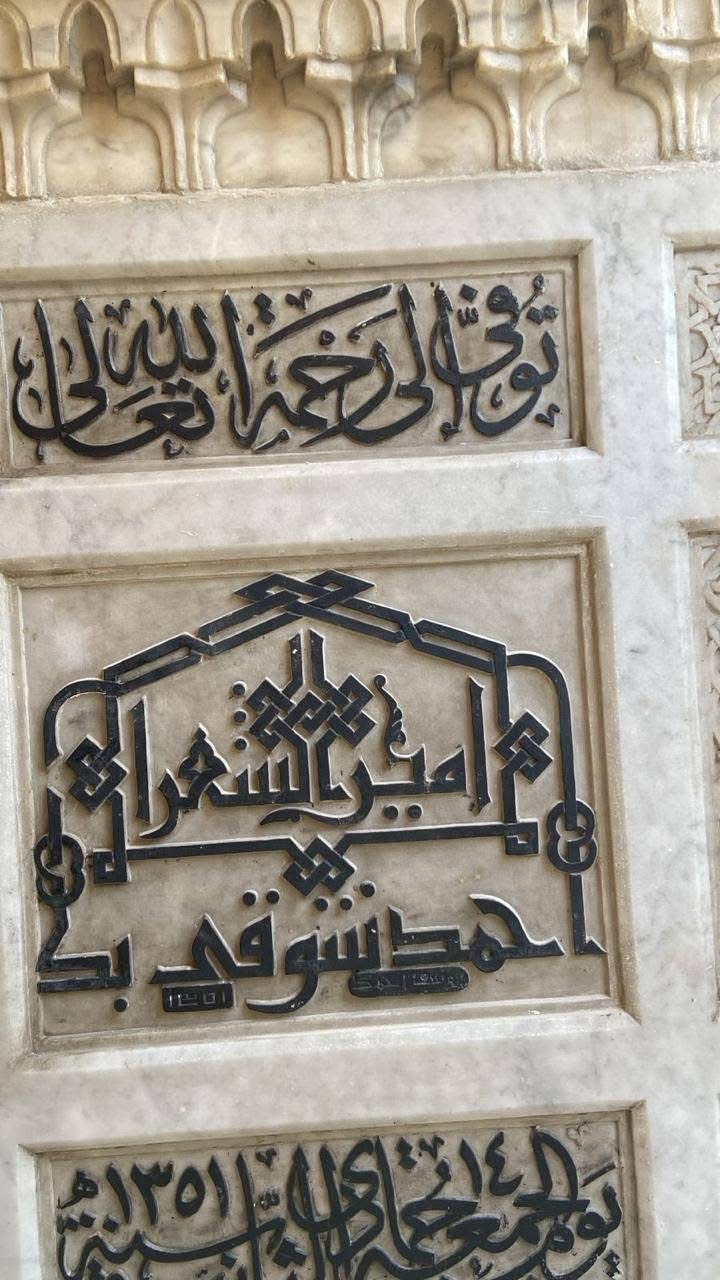 توفى إلى رحمة الله تعالى
امير الشعرا
احمد شوقي بك
يوسف احمد
١٣٥١
يوم الجمعة ١٤ جمادى الثانية سنة ١٣٥١ هـ